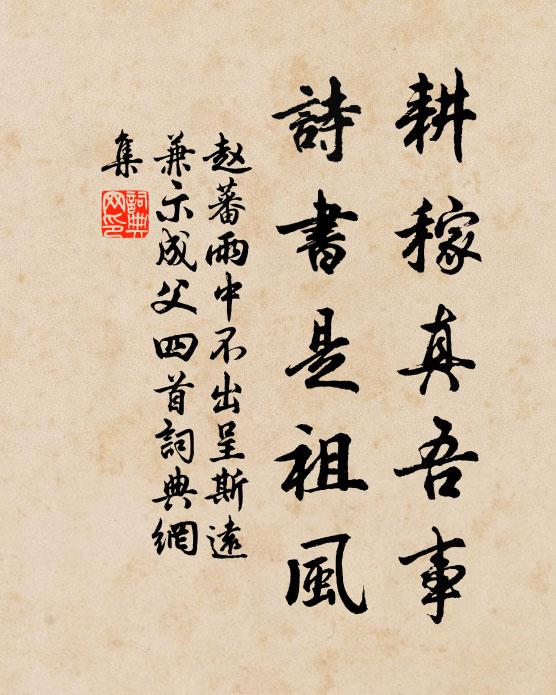 耕稼真吾事
詩書是祖風
赵蕃雨中不出呈斯遠
兼示成父四首詞典網
集
詞典
网印